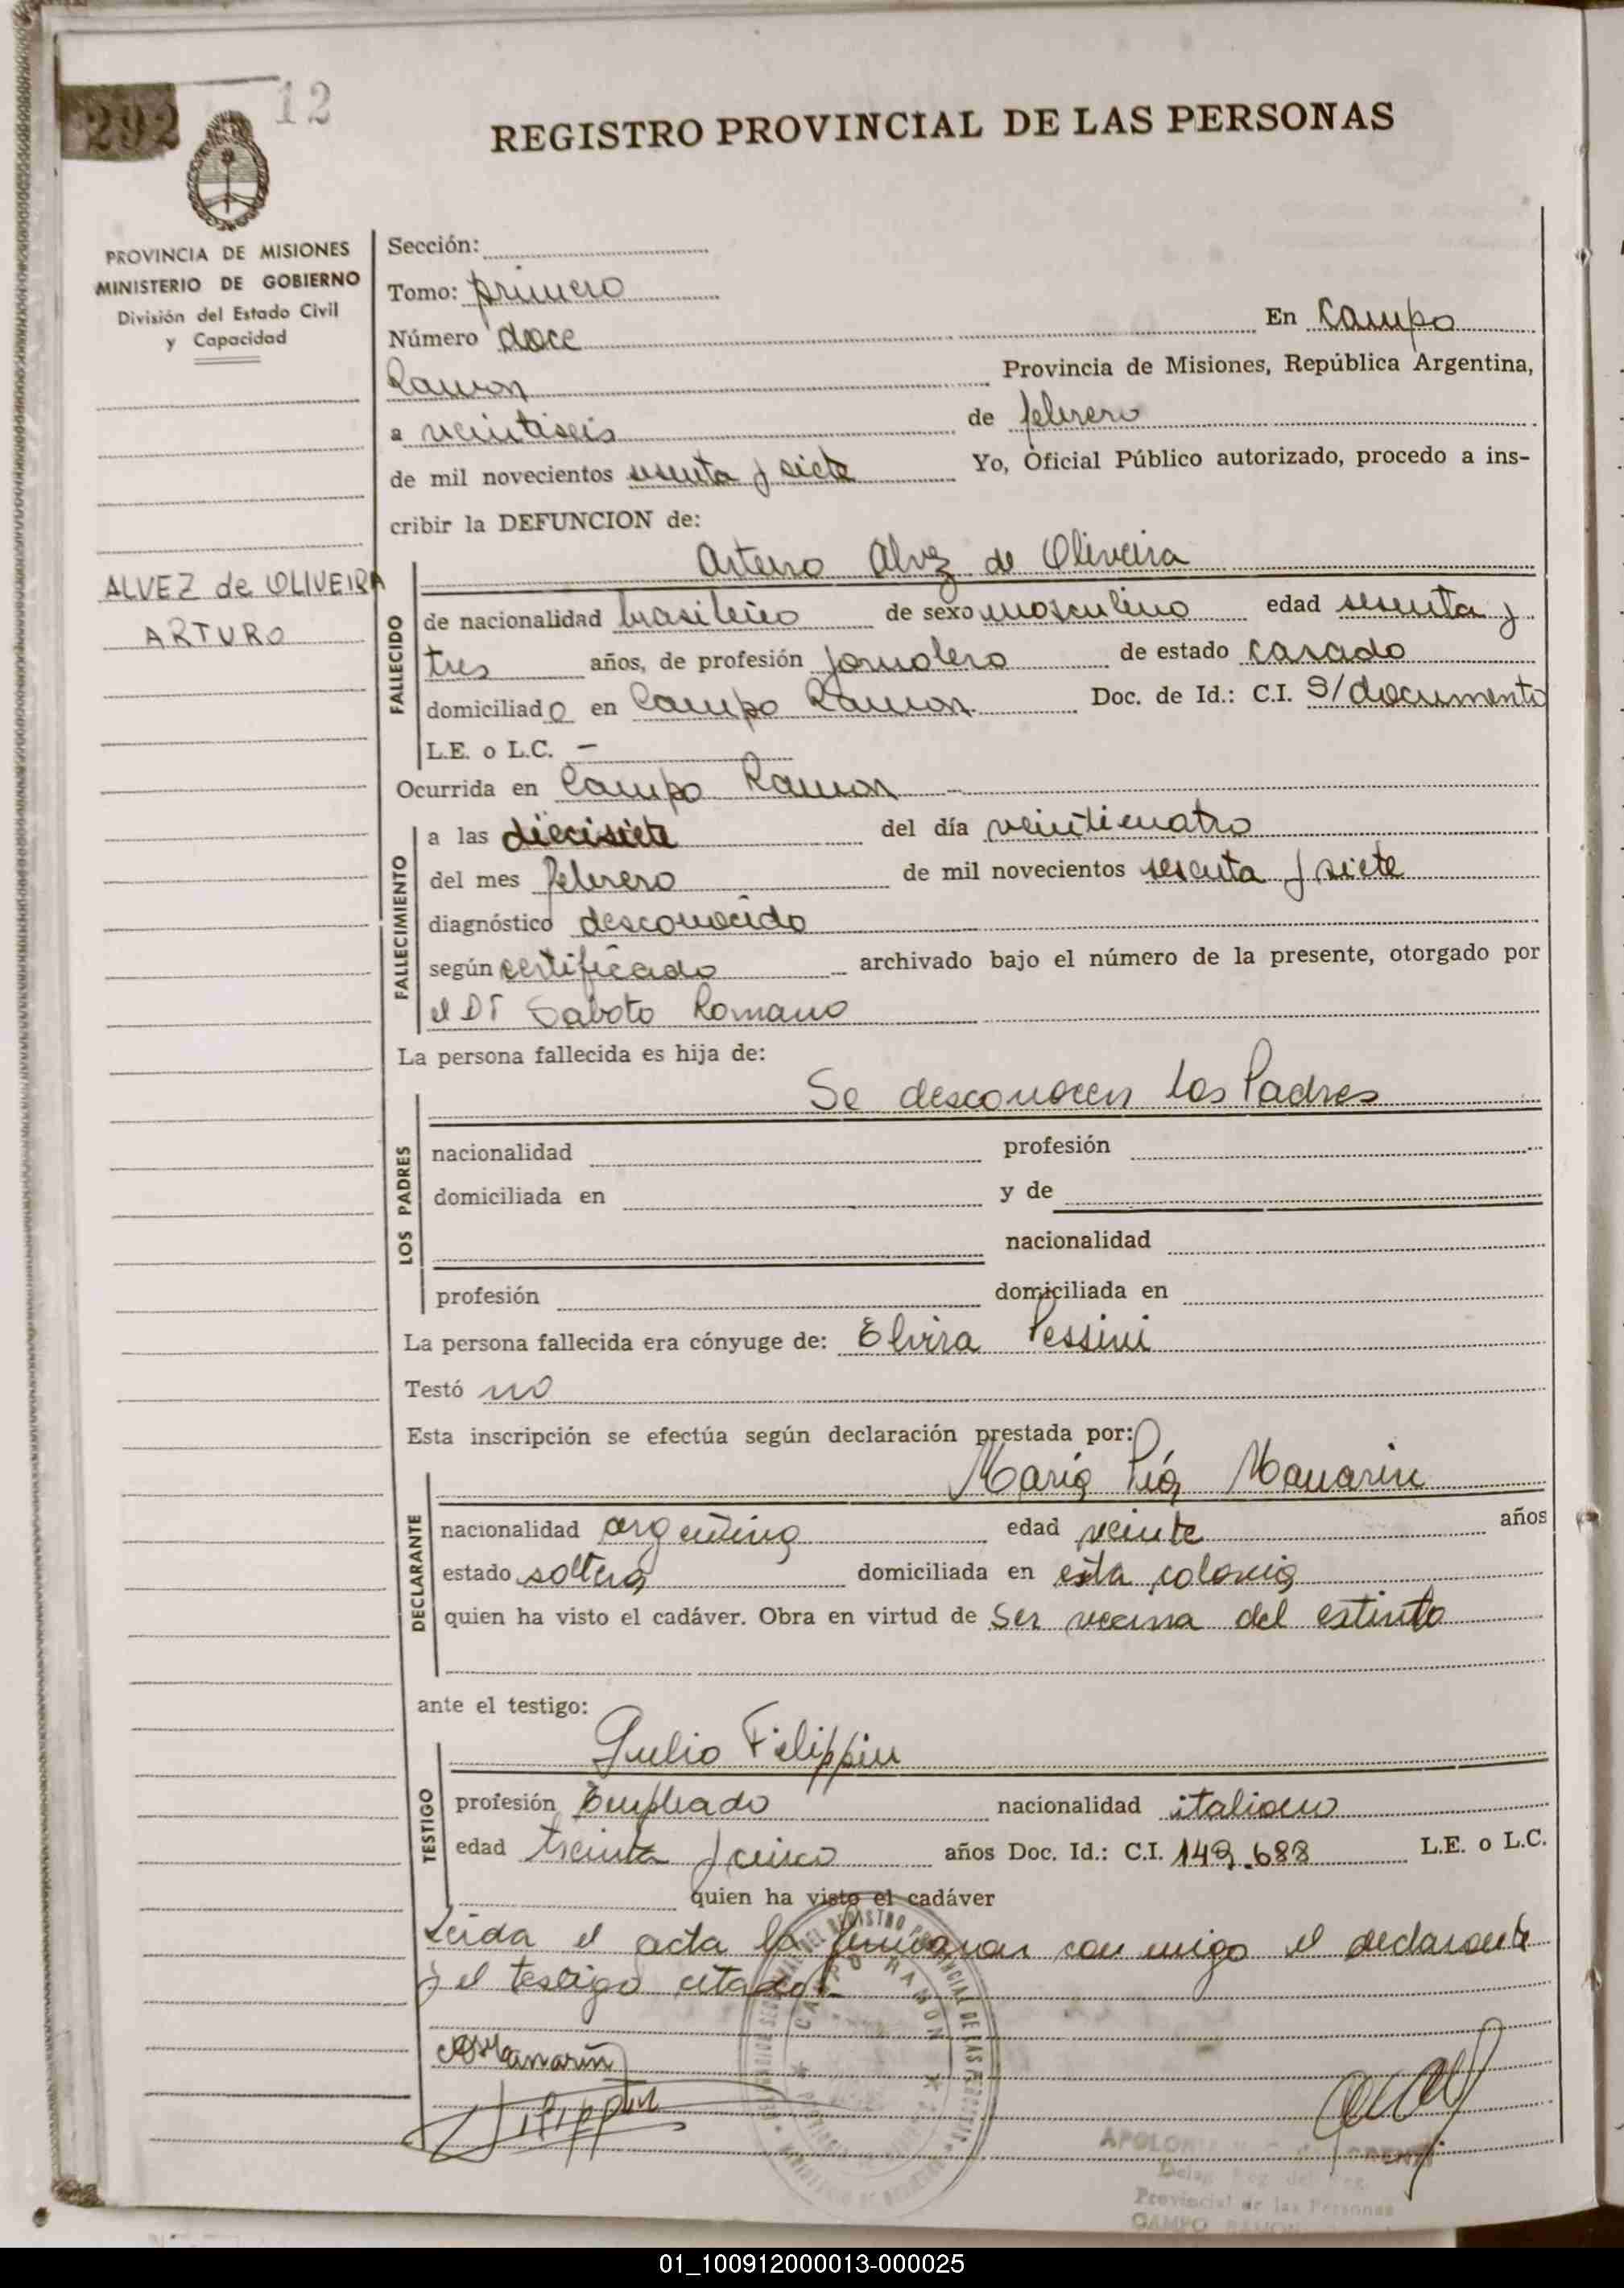 292
12
REGISTRO PROVINCIAL DE LAS PERSONAS
PROVINCIA DE MISIONES
MINISTERIO DE GOBIERNO
División del Estado Civil
y Capacidad
Sección:
Tomo: primero
Número doce En Campo
Ramon Provincia de Misiones, República Argentina,
a veintiseis de febrero
de mil novecientos sesenta y siete Yo, Oficial Público autorizado, procedo a ins-
cribir la DEFUNCION de:
ALVEZ de OLIVEIRA
ARTURO
FALLECIDO
Arturo Alvez de Oliveira
de nacionalidad brasileño de sexo masculino edad sesenta y
tres años, de profesión Jornalero de estado casado
domiciliado en Campo Ramon Doc. de Id.: C.I. S/documento
L.E. o L.C. –
Ocurrida en Campo Ramon
FALLECIMIENTO
a las diecisiete del día veinticuatro
del mes febrero de mil novecientos sesenta y siete
diagnóstico desconocido
según certificado archivado bajo el número de la presente, otorgado por
el Dr Saboto Romano
La persona fallecida es hija de:
LOS PADRES
Se desconocen los Padres
nacionalidad profesión
domiciliada en y de
nacionalidad
profesión domiciliada en
La persona fallecida era cónyuge de: Elvira Pessini
Testó no
Esta inscripción se efectúa según declaración prestada por:
DECLARANTE
María Pía Manarin
nacionalidad argentina edad veinte años
estado soltera domiciliada en esta colonia
quien ha visto el cadáver. Obra en virtud de ser vecina del estinto
ante el testigo:
TESTIGO
Gulio Filippin
profesión Empleado nacionalidad italiano
edad treinta y cinco años Doc. Id.: C.I. 149.688 L.E. o L.C.
quien ha visto el cadáver
Leida el acta la firman con migo el declarante
y el testigo citado.
Manarin
Filippin
CAMPO RAMON
APOLON
Provincial de las Personas
CAMPO RAMON
01_100912000013-000025